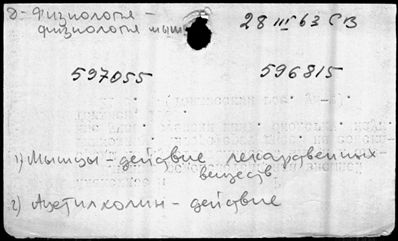 д- Физиология - 28 III 63 СВ
физиология мышц
597055 596815
1) Мышцы - действие лекарственных
веществ
2) Ацетилхолин - действие